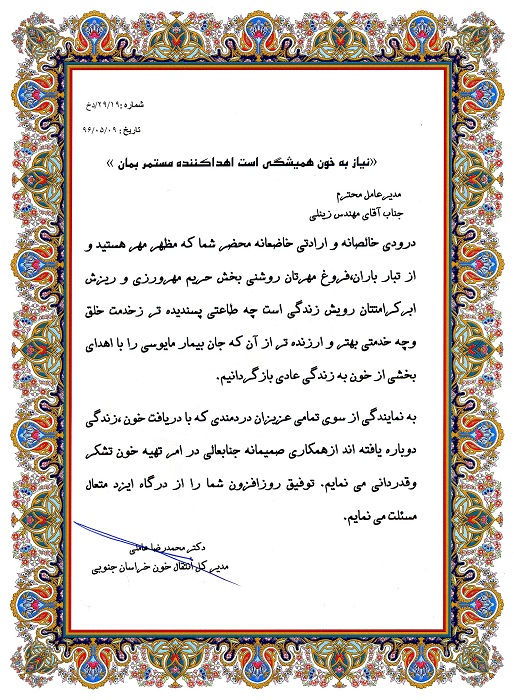 شماره :۲۹/۱۹/دخ
تاریخ : ۹۶/۰۵/۰۹
«نیاز به خون همیشگی است اهداکننده مستمر بمان »
مدیرعامل محترم
جناب آقای مهندس زینلی
درودی خالصانه و ارادتی خاضعانه محضر شما که مظهر مهر هستید و
از تبار باران،فروغ مهرتان روشنی بخش حریم مهرورزی و ریزش
ابرکرامتتان رویش زندگی است چه طاعتی پسندیده تر زخدمت خلق
وچه خدمتی بهتر و ارزنده تر از آن که جان بیمار مایوسی را با اهدای
بخشی از خون به زندگی عادی بازگردانیم.
به نمایندگی از سوی تمامی عزیزان دردمندی که با دریافت خون ،زندگی
دوباره یافته اند ازهمکاری صمیمانه جنابعالی در امر تهیه خون تشکر
وقدردانی می نمایم. توفیق روزافزون شما را از درگاه ایزد متعال
مسئلت می نمایم.
دکتر محمدرضا عاملی
مدیر کل انتقال خون خراسان جنوبی